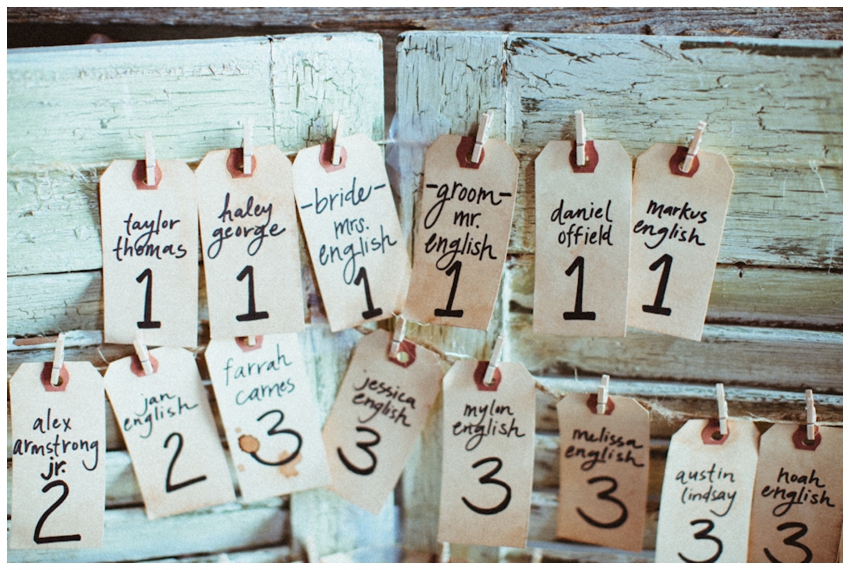 taylor
thomas
1
haley
george
1
-bride-
mrs.
english
1
-groom-
mr.
english
1
daniel
offield
1
markus
english
1
alex
armstrong
jr.
2
jan
english
2
farrah
carnes
3
jessica
english
3
mylan
english
3
melissa
english
3
austin
lindsay
3
noah
english
3